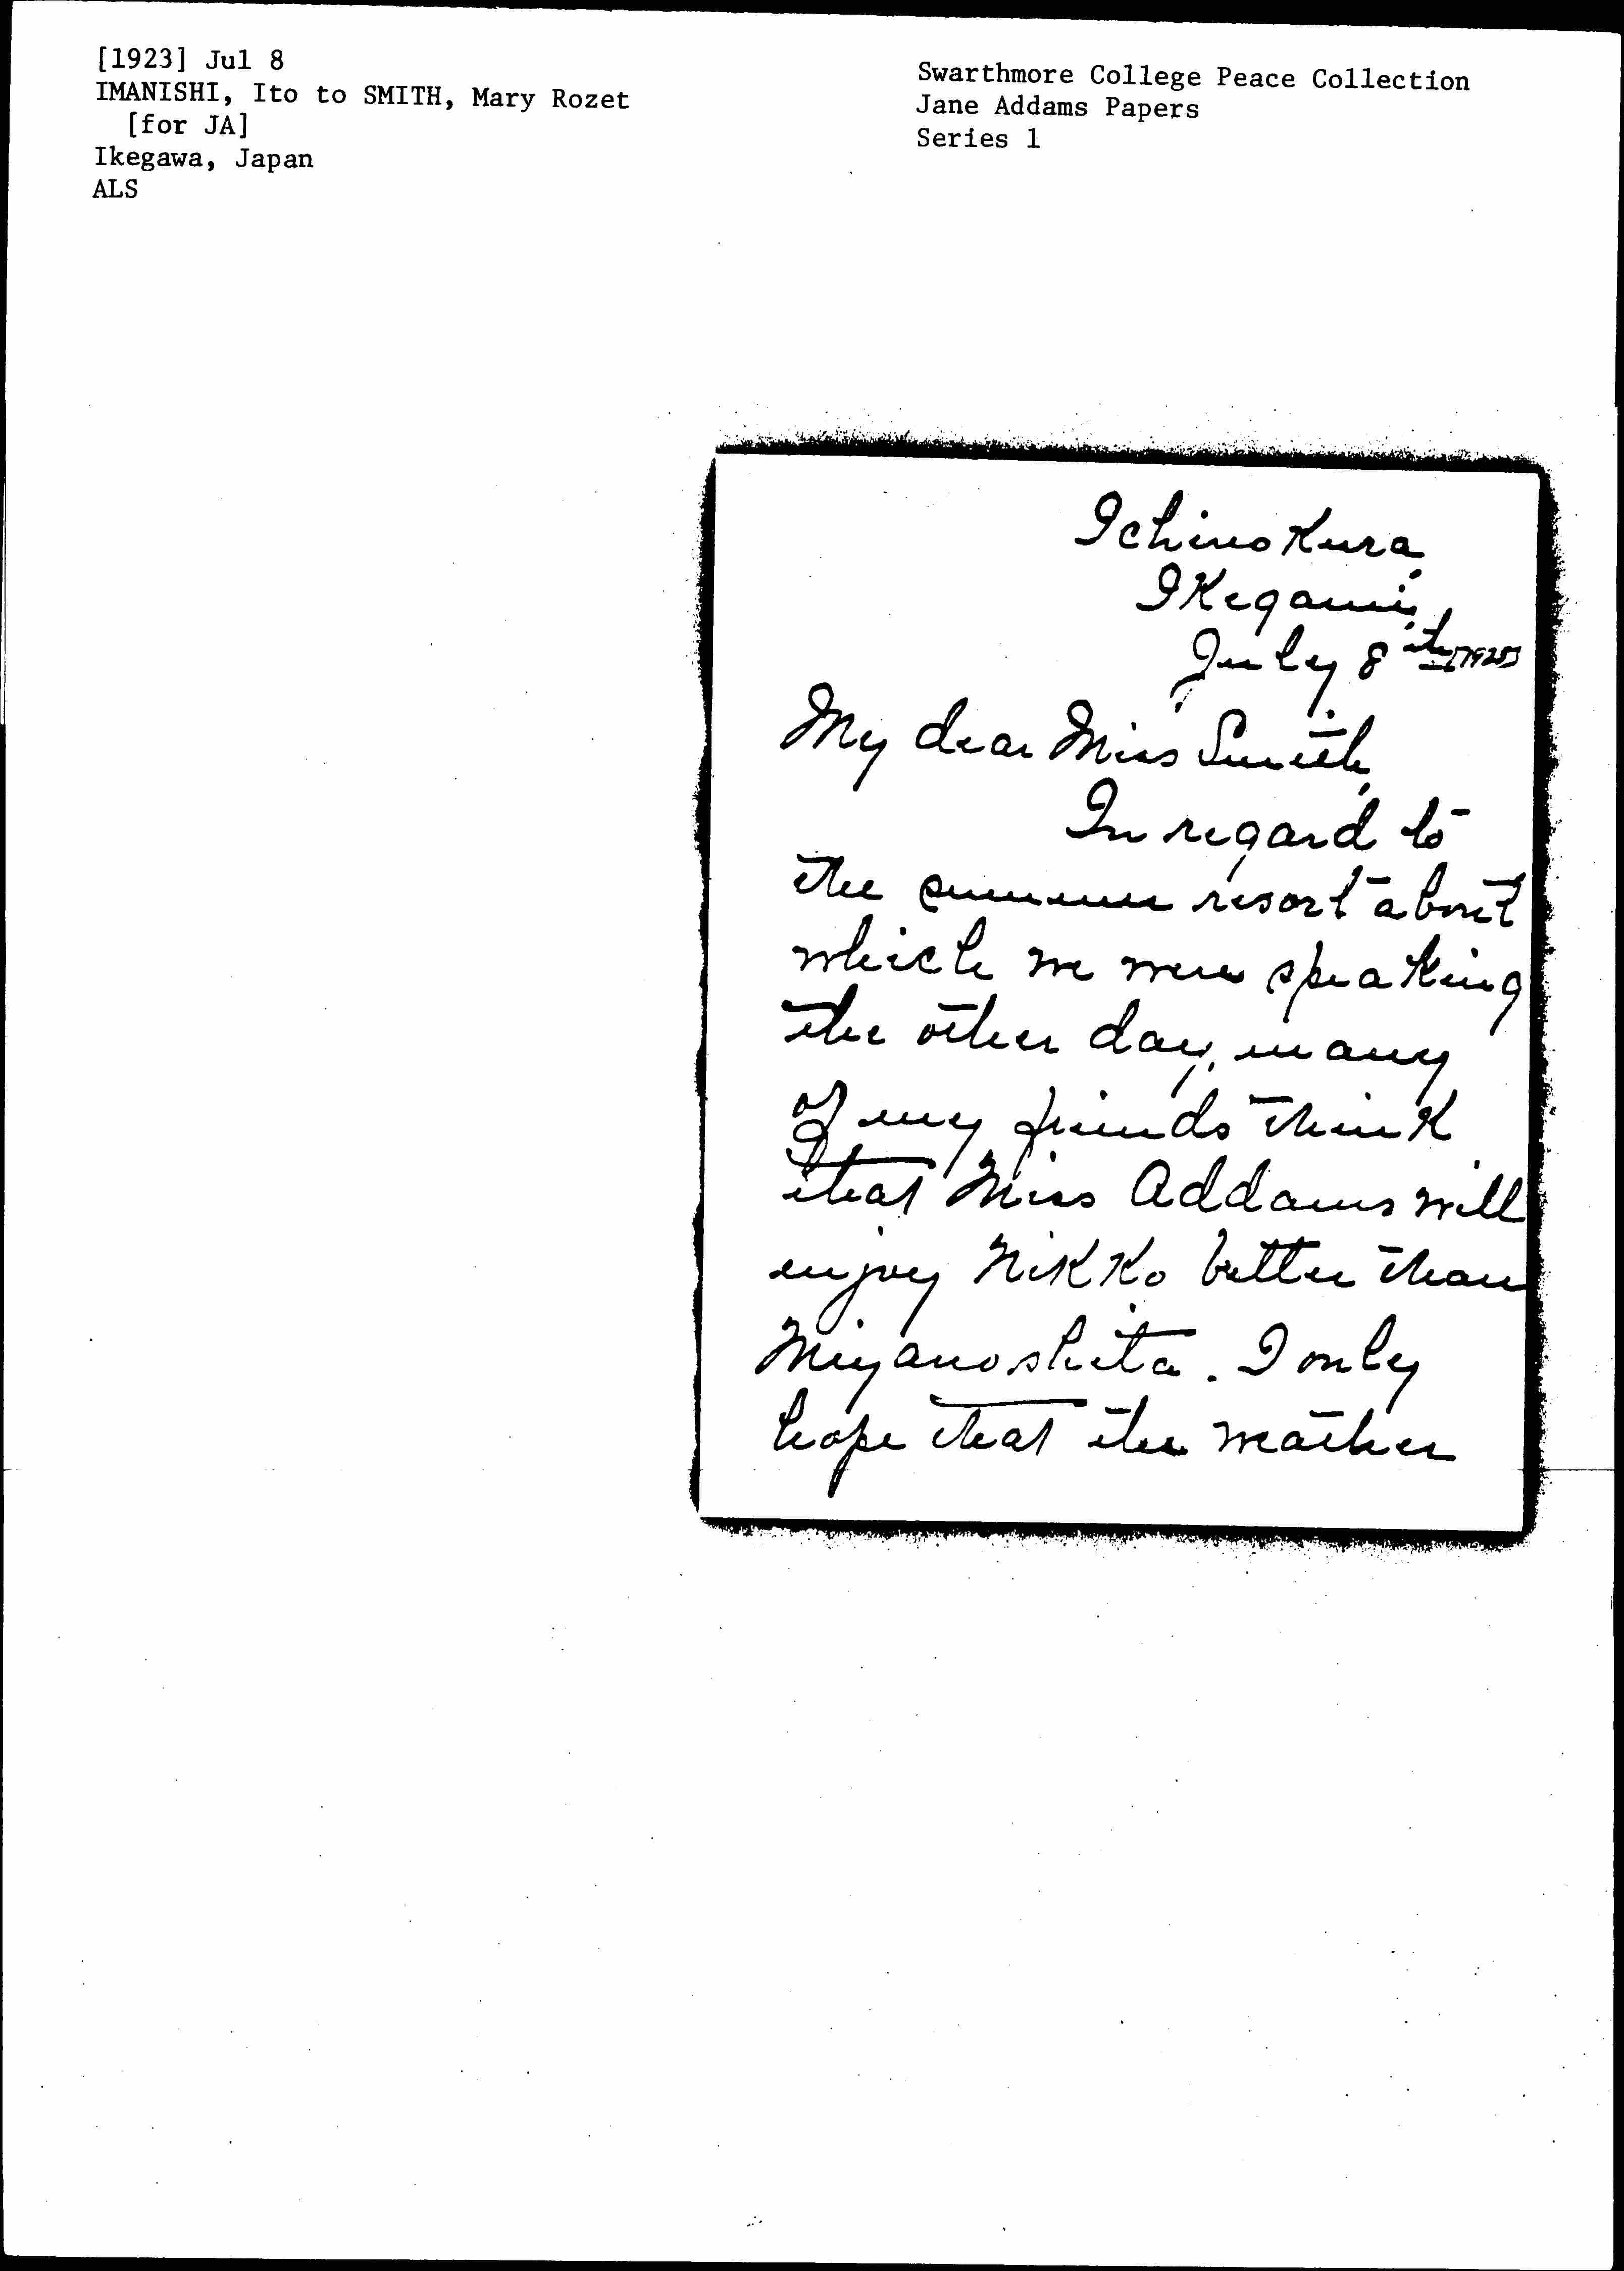 [1923] Jul 8
IMANISHI, Ito to SMITH, Mary Rozet
[for JA]
Ikegawa, Japan
ALS
Swarthmore College Peace Collection
Jane Addams Papers
Series 1
Ichino Kura,
IKegami,
July 8th
My dear Miss Smith,
In regard to
the summer resort about
which we were speaking
the other day, many
of my friends think
that Miss Addams will
enjoy NikKo better than
Miyanoshita. I only
hope that the weather